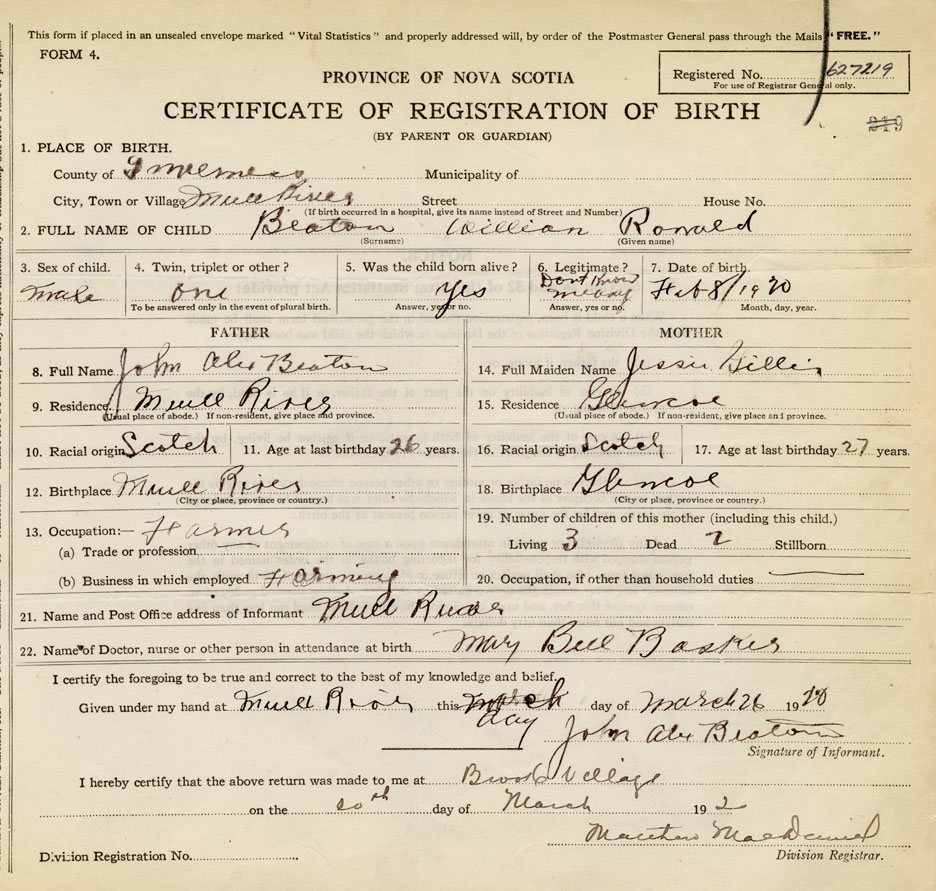 This form if placed in an unsealed envelope marked "Vital Statistics" and properly addressed will, by order of the Postmaster General pass through the Mails "FREE."
FORM 4.
Registered No. 627219
For use of Registrar General only.
PROVINCE OF NOVA SCOTIA
CERTIFICATE OF REGISTRATION OF BIRTH
(BY PARENT OR GUARDIAN)
1. PLACE OF BIRTH.
County of Inverness Municipality of
City, Town or Village Mull River Street House No.
(If birth occurred in a hospital, give its name instead of Street and Number)
2. FULL NAME OF CHILD Beaton William Ronald
(Surname) (Given name)
3. Sex of child. 4. Twin, triplet or other? 5. Was the child born alive? 6. Legitimate? 7. Date of birth.
Male one Yes Dont Know Feb 8/1920
To be answered only in the event of plural birth. Answer, yes or no. Answer, yes or no. Month, day, year.
FATHER MOTHER
8. Full Name John Alex Beaton 14. Full Maiden Name Jessie Gillis
9. Residence Mull River 15. Residence Glencoe
(Usual place of abode.) If non-resident, give place and province. (Usual place of abode.) If non-resident, give place and province.
10. Racial origin Scotch 11. Age at last birthday 26 years. 16. Racial origin Scotch 17. Age at last birthday 27 years.
12. Birthplace Mull River 18. Birthplace Glencoe
(City or place, province or country.) (City or place, province or country.)
13. Occupation:— Farmer 19. Number of children of this mother (including this child.)
(a) Trade or profession Living 3 Dead Stillborn
(b) Business in which employed Farming 20. Occupation, if other than household duties
21. Name and Post Office address of Informant Mull River
22. Name of Doctor, nurse or other person in attendance at birth Mary Bell
I certify the foregoing to be true and correct to the best of my knowledge and belief.
Given under my hand at Mull River this March day day of March 26 1920
John Alex Beaton
Signature of Informant.
I hereby certify that the above return was made to me at Brook Village
on the day of March 192
Matthew MacDaniel
Division Registration No. Division Registrar.